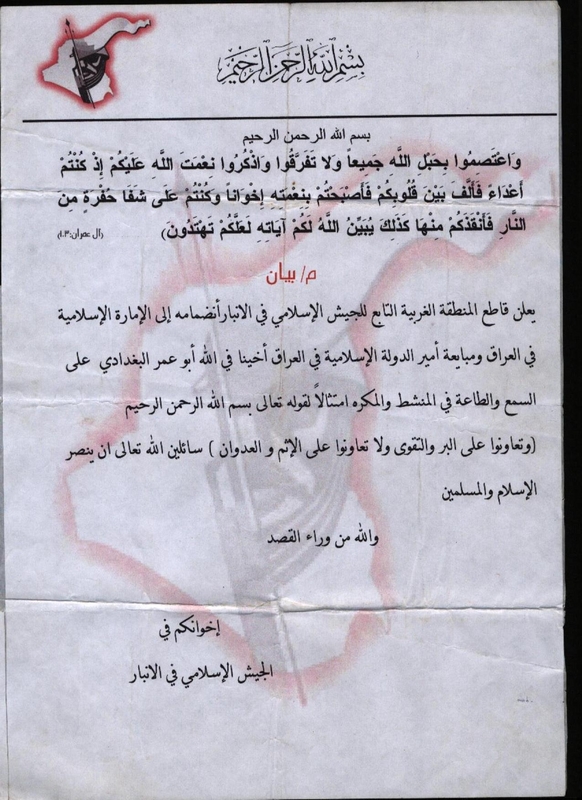 بسم الله الرحمن الرحيم
بسم الله الرحمن الرحيم
وَاعْتَصِمُوا بِحَبْلِ اللَّهِ جَمِيعاً وَلا تَفَرَّقُوا وَاذْكُرُوا نِعْمَتَ اللَّهِ عَلَيْكُمْ إِذْ كُنْتُمْ
أَعْدَاءً فَأَلَّفَ بَيْنَ قُلُوبِكُمْ فَأَصْبَحْتُمْ بِنِعْمَتِهِ إِخْوَاناً وَكُنْتُمْ عَلَى شَفَا حُفْرَةٍ مِنَ
النَّارِ فَأَنْقَذَكُمْ مِنْهَا كَذَلِكَ يُبَيِّنُ اللَّهُ لَكُمْ آيَاتِهِ لَعَلَّكُمْ تَهْتَدُونَ) (آل عمران:١٠٣)
م/ بيان
يعلن قاطع المنطقة الغربية التابع للجيش الإسلامي في الانبار أنضمامه إلى الإمارة الإسلامية
في العراق ومبايعة أمير الدولة الإسلامية في العراق أخينا في الله أبو عمر البغدادي على
السمع والطاعة في المنشط والمكره امتثالاً لقوله تعالى بسم الله الرحمن الرحيم
(وتعاونوا على البر والتقوى ولا تعاونوا على الإثم و العدوان ) سائلين الله تعالى ان ينصر
الإسلام والمسلمين
والله من وراء القصد
إخوانكم في
الجيش الإسلامي في الانبار